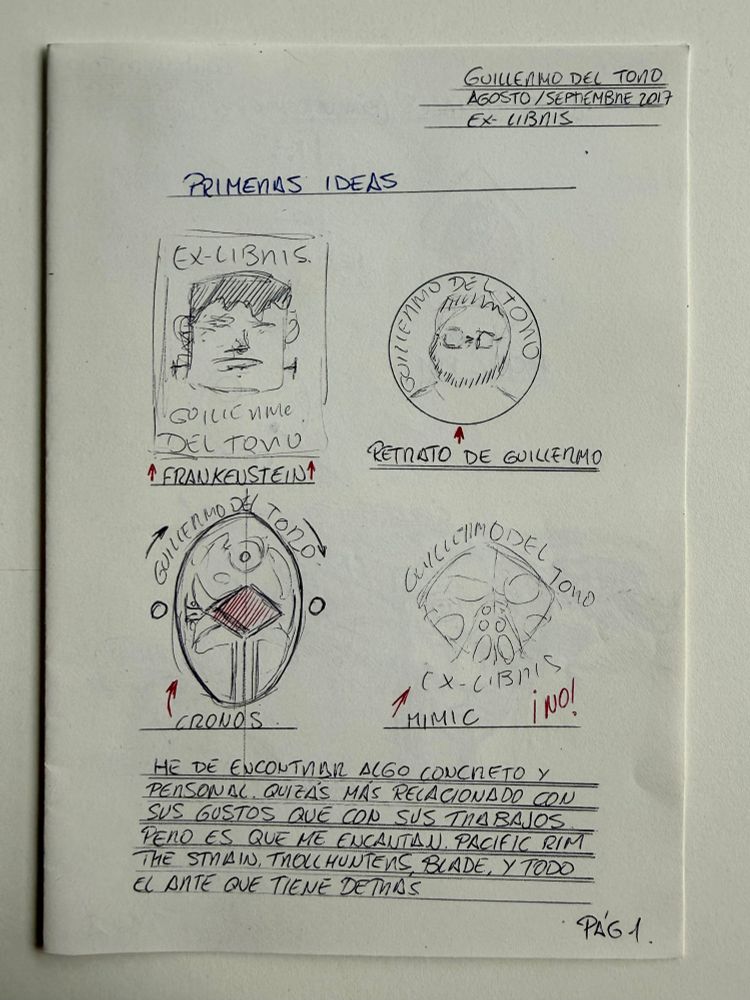 GUILLERMO DEL TORO
AGOSTO/SEPTIEMBRE 2017
EX-LIBRIS
PRIMERAS IDEAS
EX-LIBRIS.
GUILLERMO
DEL TORO
FRANKENSTEIN
GUILLERMO DEL TORO
RETRATO DE GUILLERMO
GUILLERMO DEL TORO
CRONOS
GUILLERMO DEL TORO
EX-LIBRIS
MIMIC
¡NO!
HE DE ENCONTRAR ALGO CONCRETO Y
PERSONAL. QUIZÁS MÁS RELACIONADO CON
SUS GUSTOS QUE CON SUS TRABAJOS.
PERO ES QUE ME ENCANTAN. PACIFIC RIM
THE STRAIN, TROLLHUNTERS, BLADE, Y TODO
EL ARTE QUE TIENE DETRÁS
PÁG 1.